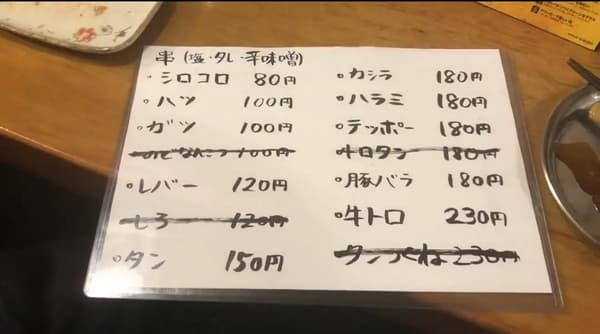 串(塩・タレ・辛味噌)
。シロコロ 80円
。ハツ 100円
。ガツ 100円
のどなんこつ 100円
。レバー 120円
しろ 120円
。タン 150円
。カシラ 180円
。ハラミ 180円
。テッポー 180円
牛ロタン 180円
。豚バラ 180円
。牛トロ 230円
タンつくね 230円